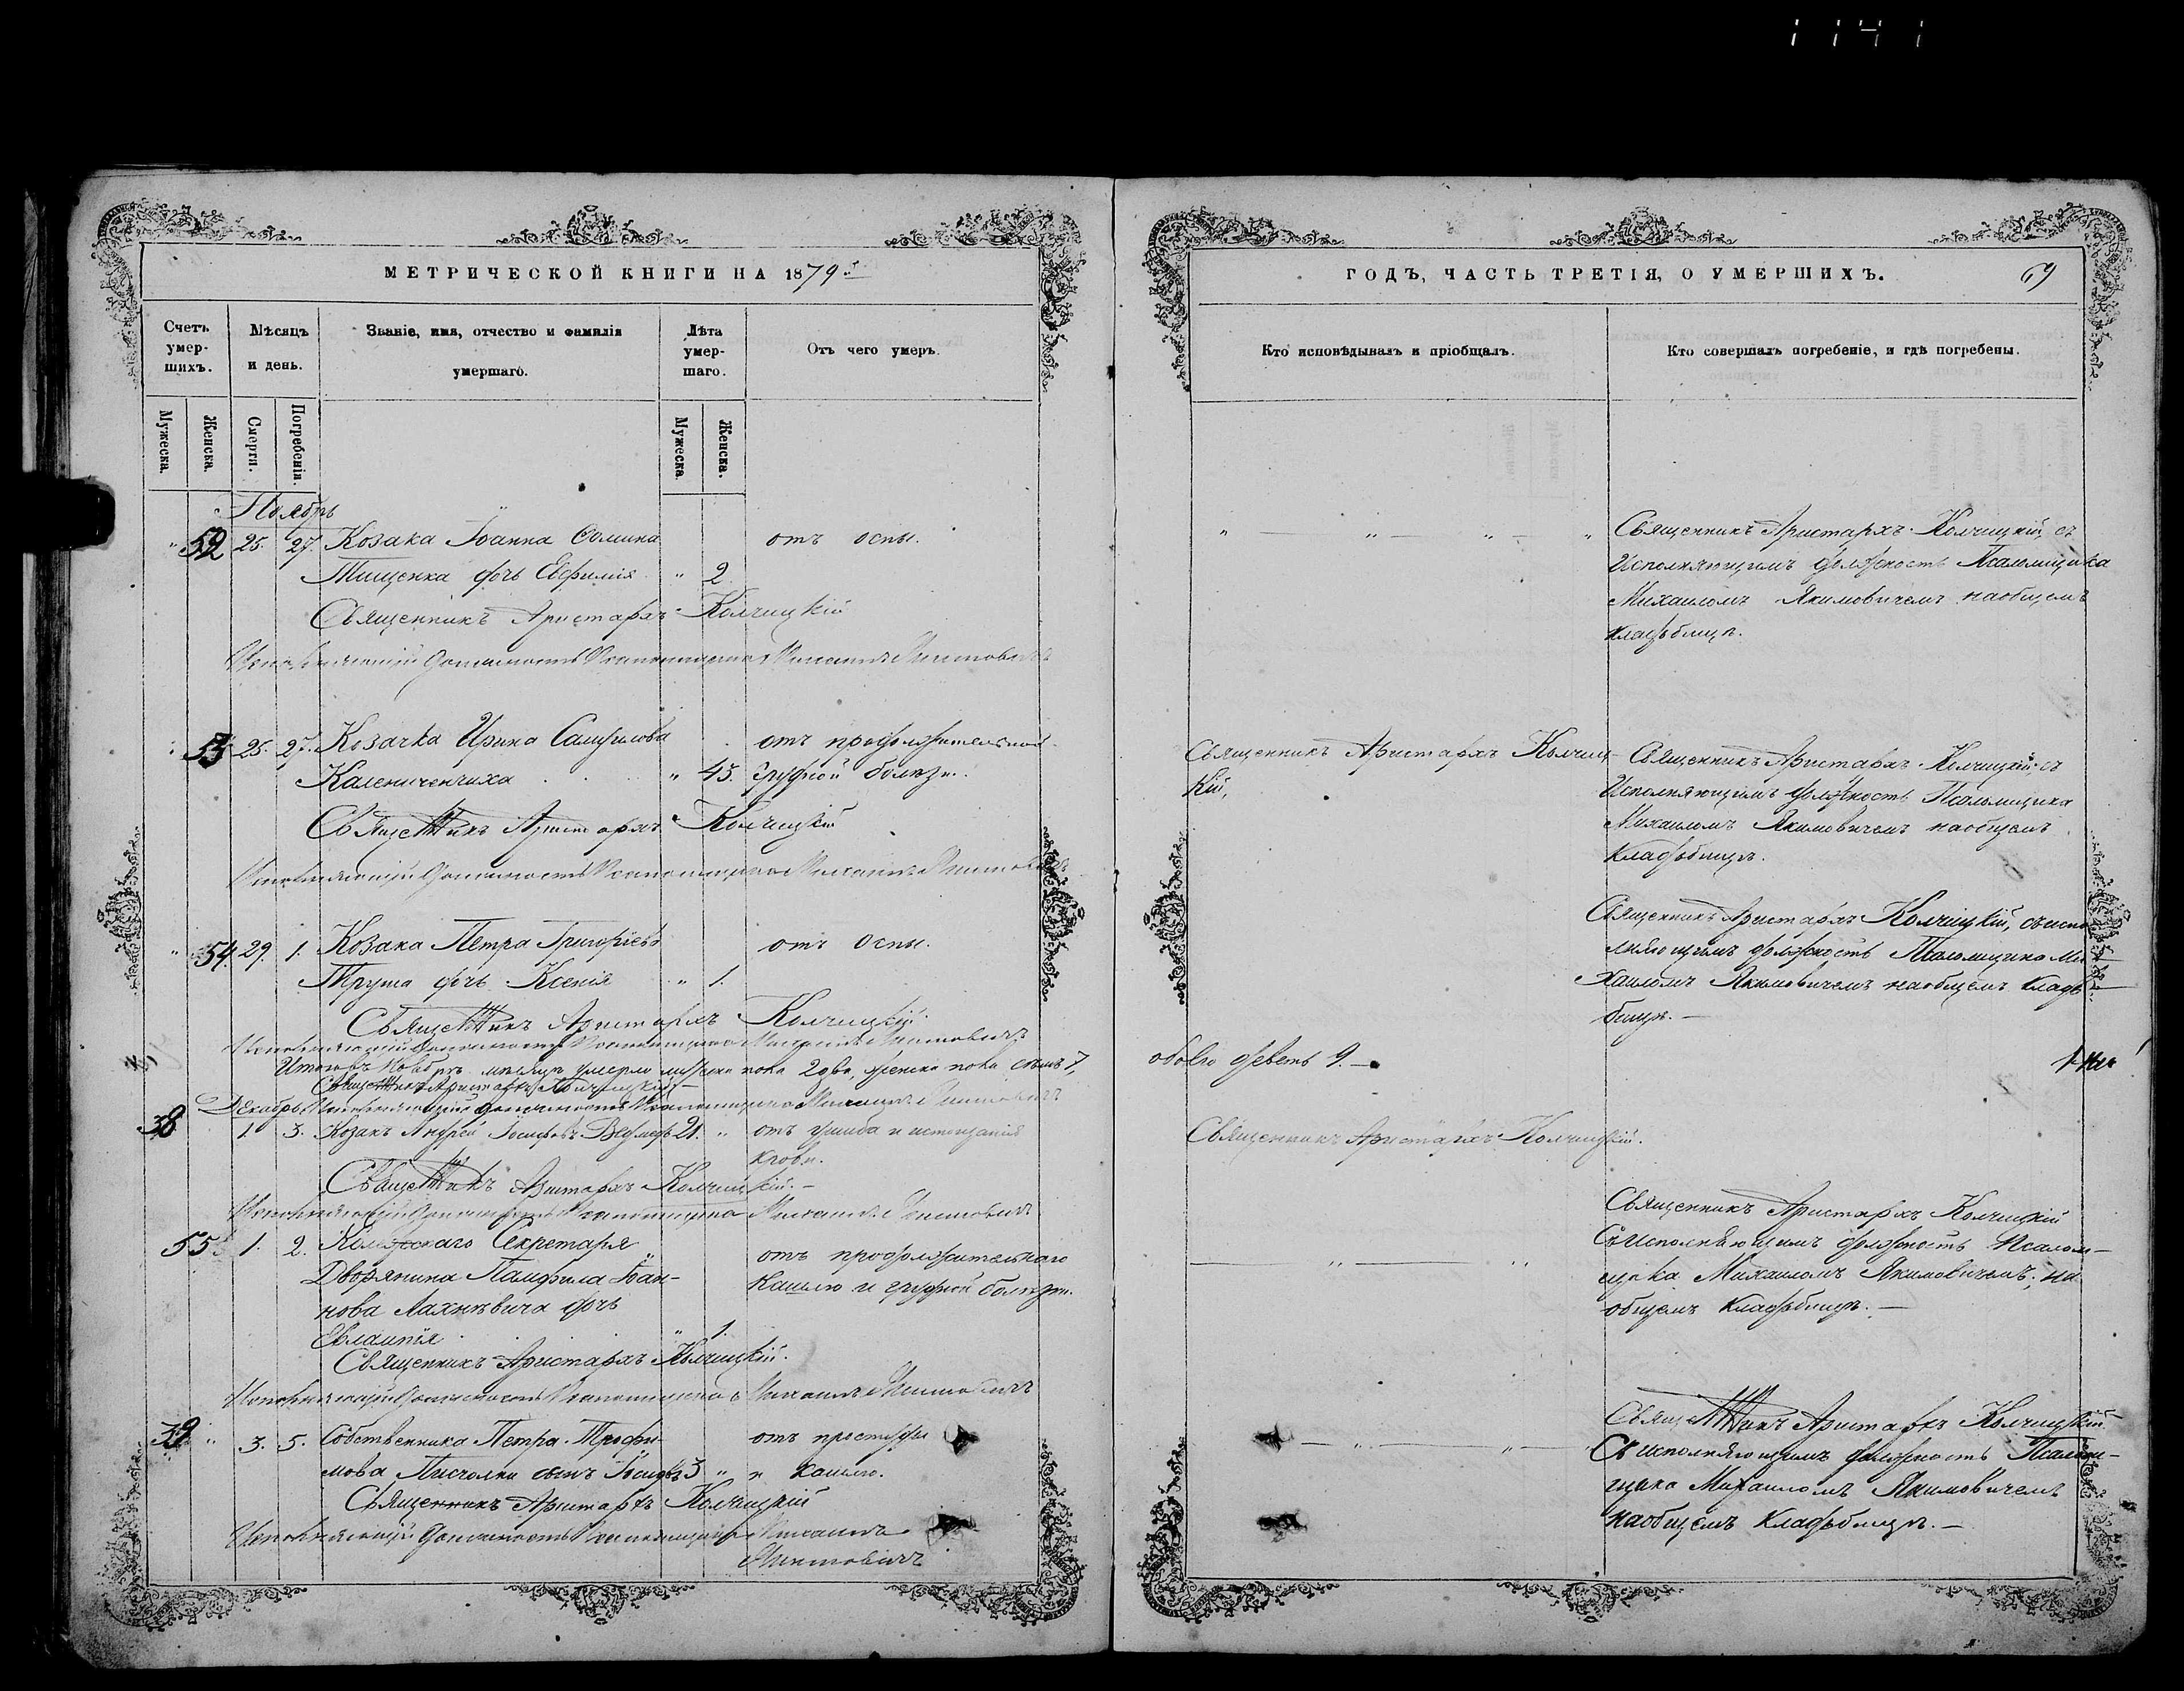 1141
МЕТРИЧЕСКОЙ КНИГИ НА 1879й
Счетъ умер-шихъ.
Мѣсяцъ и день.
Званіе, имя, отчество и фамилія умершаго.
Лѣта умер-шаго.
Отъ чего умеръ.
Мужеска.
Женска.
Смерти.
Погребенія.
Мужеска.
Женска.
Ноябрь
52 25. 27. Козака Іоанна
Тищенка дочь Евфимія " 2 отъ оспы.
Священникъ Аристархъ Колчицкій
Исполняющій Должность Псаломщика Михаилъ Якимовичъ
53 25. 27. Козачка Ирина отъ продолжительной
Калениченчиха " 43. грудной болѣзн.
Священникъ Аристархъ Колчицкій
Исполняющій Должность Псаломщика Михаилъ Якимовичъ
54. 29. 1. Козака Петра Григоріева отъ оспы.
Труша дочь Ксенія " 1.
Священникъ Аристархъ Колчицкій
Исполняющій Должность Псаломщика Михаилъ Якимовичъ
Итого въ Ноябрѣ мѣсяцѣ умерло мужеска пола 2 два, женска пола семь 7,
Священникъ Аристархъ Колчицкій
Декабрь Исполняющій Должность Псаломщика Михаилъ Якимовичъ
38 1. 3. Козакъ Андрей Іосифовъ 21. " отъ ушиба и истощанія
крови.
Священникъ Аристархъ Колчицкій.
Исполняющій Должность Псаломщика Михаилъ Якимовичъ
55 1. 2. Коллежскаго Секретаря отъ продолжительнаго
Дворянина Памфила Іоан- кашлю и грудной болѣзн.
нова Лахневича дочь
Евлампія " 1.
Священникъ Аристархъ Колчицкій.
Исполняющій Должность Псаломщика Михаилъ Якимовичъ
39 " 3. 5. Собственника Петра Трофи- отъ простуды
мова сынъ Іосифъ 3 " и кашлю.
Священникъ Аристархъ Колчицкій
Исполняющій Должность Псаломщика Михаилъ
Якимовичъ
ГОДЪ, ЧАСТЬ ТРЕТІЯ, О УМЕРШИХЪ.
69
Кто исповѣдывалъ и пріобщалъ.
Кто совершалъ погребеніе, и гдѣ погребены.
Священникъ Аристархъ Колчицкій, съ
Исполняющимъ должность Псаломщика
Михаиломъ Якимовичемъ наобщемъ
кладбищѣ.
Священникъ Аристархъ Колчиц-
кій,
Священникъ Аристархъ Колчицкій съ
Исполняющимъ должность Псаломщика
Михаиломъ Якимовичемъ наобщемъ
кладбищѣ.
Священникъ Аристархъ Колчицкій, съиспо
лняющимъ должность Псаломщика Ми-
хаиломъ Якимовичемъ наобщемъ клад-
бищѣ.
обоего девять 9.
Священникъ Аристархъ Колчицкій.
Священникъ Аристархъ Колчицкій
Съ Исполняющимъ должность Псалом-
щика Михаиломъ Якимовичемъ, на
общемъ кладбищѣ.
Священникъ Аристархъ Колчицкій
Съ исполняющимъ должность Псалом-
щика Михаиломъ Якимовичемъ
наобщемъ кладбищѣ.